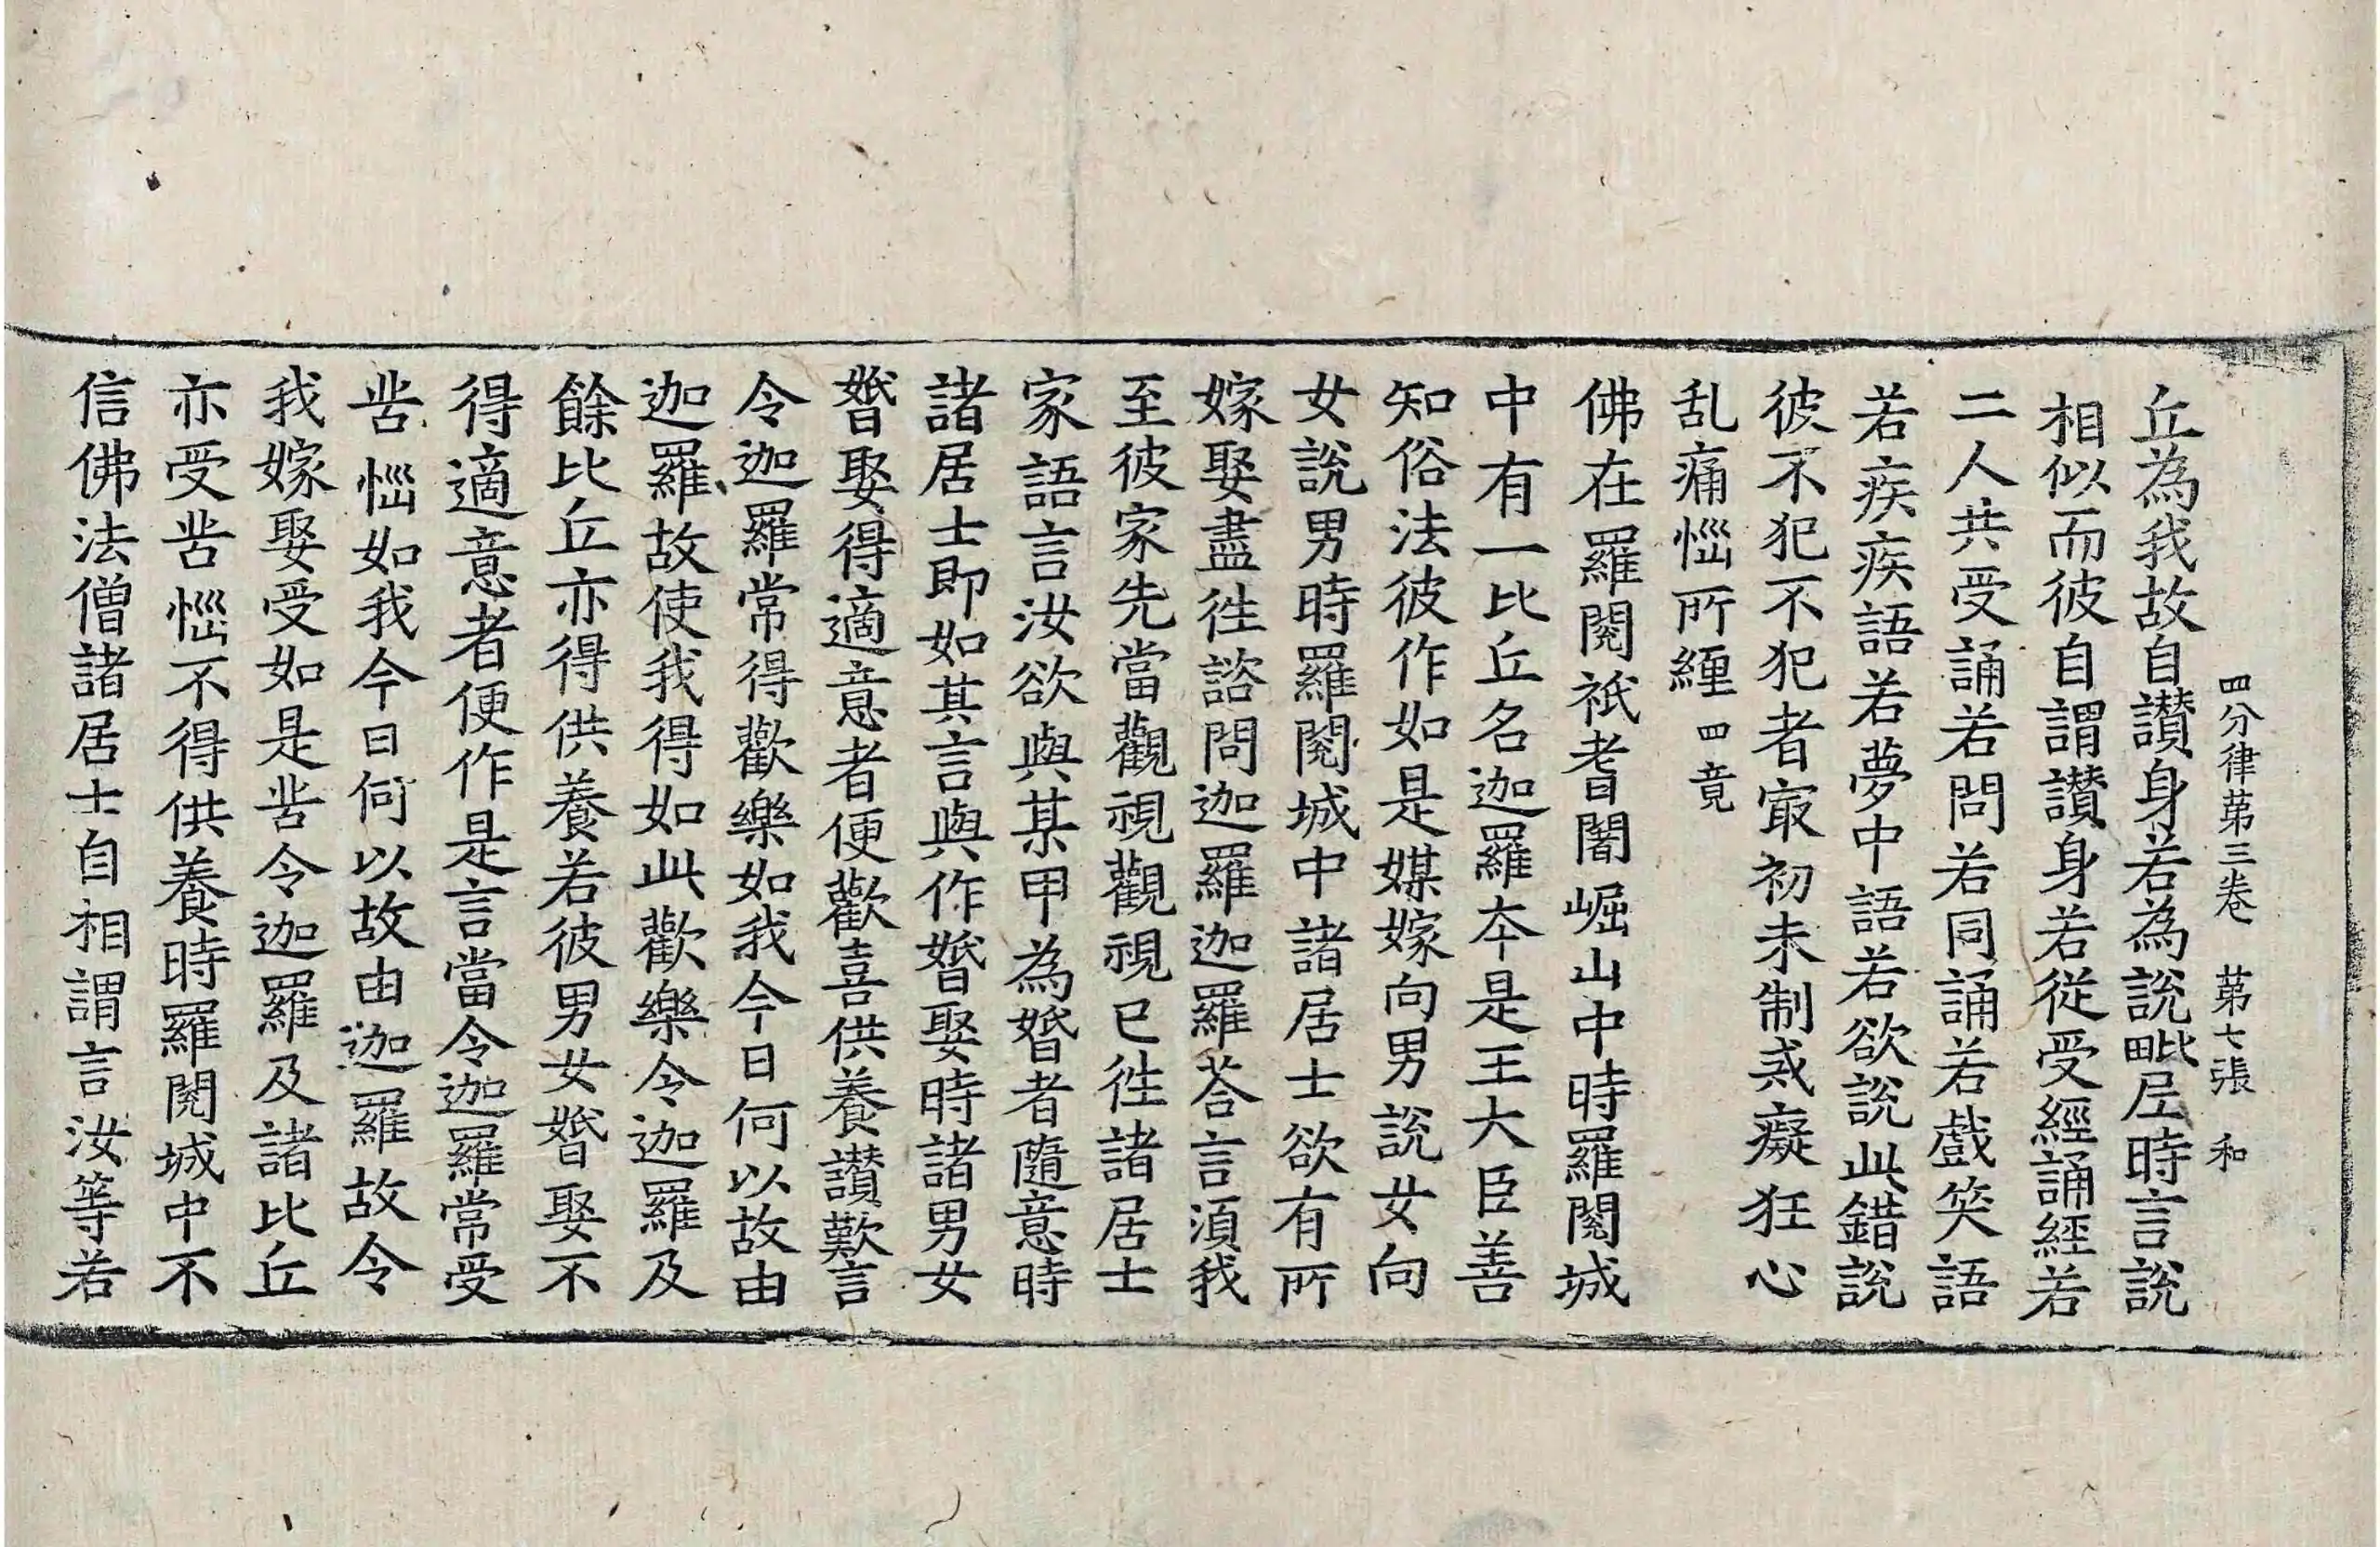 四分律苐三卷 苐七張 和
丘為我故自讃身若為說毗尼時言說
相似而彼自謂讃身若從受經誦經若
二人共受誦若問若同誦若戲笑語
若疾疾語若夢中語若欲說此錯說
彼不犯不犯者㝡初未制戒癡狂心
乱痛惱所纏四竟
佛在羅閱祇耆闍崛山中時羅閱城
中有一比丘名迦羅夲是王大臣善
知俗法彼作如是媒嫁向男說女向
女說男時羅閱城中諸居士欲有所
嫁娶盡徃諮問迦羅迦羅荅言須我
至彼家先當觀視觀視已徃諸居士
家語言汝欲與某甲為婚者隨意時
諸居士即如其言與作婚娶時諸男女
婚娶得適意者便歡喜供養讃歎言
令迦羅常得歡樂如我今日何以故由
迦羅故使我得如此歡樂令迦羅及
餘比丘亦得供養若彼男女婚娶不
得適意者便作是言當令迦羅常受
苦惱如我今日何以故由迦羅故令
我嫁娶受如是苦令迦羅及諸比丘
亦受苦惱不得供養時羅閱城中不
信佛法僧諸居士自相謂言汝等若